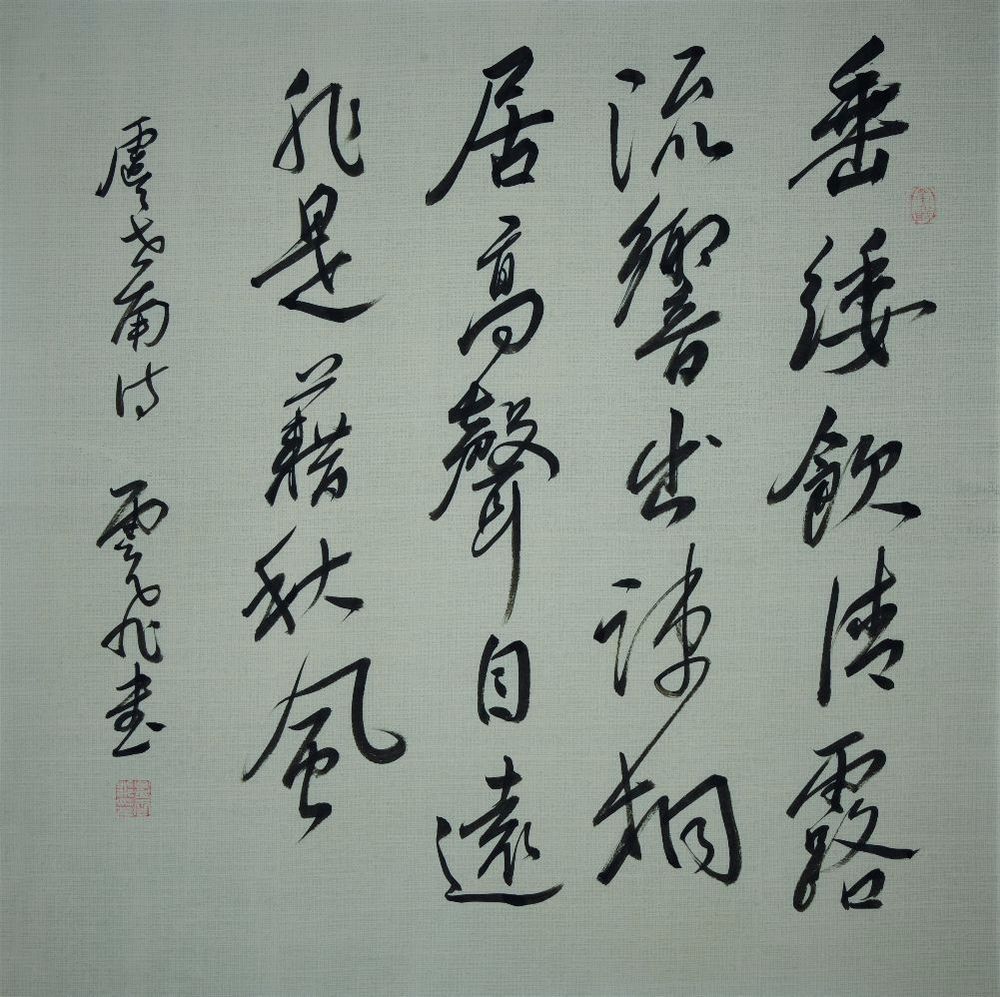 垂緌飲清露
流響出疎桐
居高聲自遠
非是藉秋風
虞世南诗 雲飛書